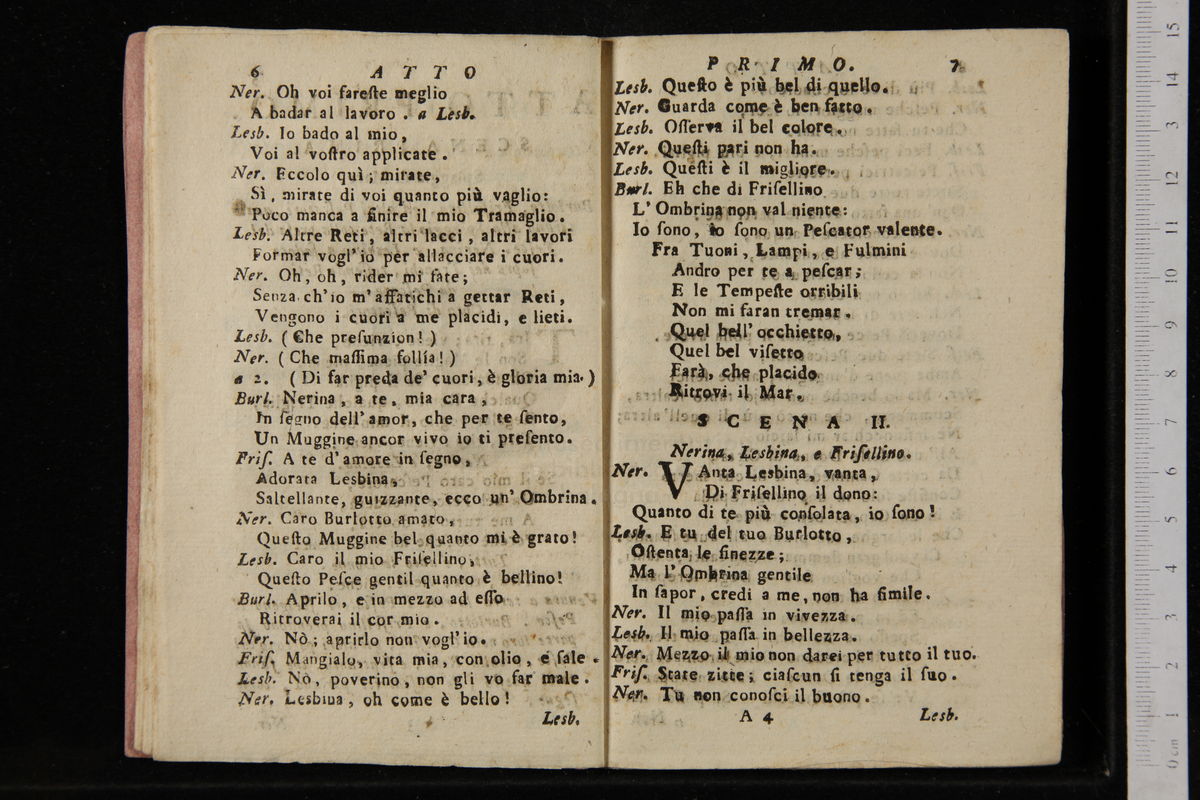 6 ATTO
Ner. Oh voi fareſte meglio
A badar al lavoro . a Lesb.
Lesb. Io bado al mio,
Voi al voſtro applicate .
Ner. Eccolo quì ; mirate,
Sì , mirate di voi quanto più vaglio:
Poco manca a finire il mio Tramaglio .
Lesb. Altre Reti , altri lacci , altri lavori
Formar vogl' io per allacciare i cuori .
Ner. Oh, oh, rider mi fate;
Senza ch'io m'affatichi a gettar Reti,
Vengono i cuori a me placidi, e lieti.
Lesb. ( Che preſunzion ! )
Ner. ( Che maſſima follía ! )
a 2. ( Di far preda de' cuori , è gloria mia. )
Burl. Nerina , a te , mia cara ,
In ſegno dell' amor, che per te ſento,
Un Muggine ancor vivo io ti preſento.
Friſ. A te d'amore in ſegno ,
Adorata Lesbina ,
Saltellante, guizzante, ecco un' Ombrina .
Ner. Caro Burlotto amato ,
Queſto Muggine bel quanto mi è grato!
Lesb. Caro il mio Friſellino ,
Queſto Peſce gentil quanto è bellino!
Burl. Aprilo , e in mezzo ad eſſo
Ritroverai il cor mio .
Ner. Nò ; aprirlo non vogl'io .
Friſ. Mangialo, vita mia, con olio , e ſale .
Lesb. Nò, poverino , non gli vo far male .
Ner. Lesbina , oh come è bello !
Lesb.
PRIMO. 7
Lesb. Queſto è più bel di quello.
Ner. Guarda come è ben fatto .
Lesb. Oſſerva il bel colore .
Ner. Queſti pari non ha .
Lesb. Queſti è il migliore .
Burl. Eh che di Friſellino
L' Ombrina non val niente:
Io ſono , io ſono un Peſcator valente.
Fra Tuoni , Lampi , e Fulmini
Andro per te a peſcar ;
E le Tempeſte orribili
Non mi faran tremar .
Quel bell' occhietto ,
Quel bel viſetto
Farà , che placido
Ritrovi il Mar .
SCENA II.
Nerina, Lesbina, e Friſellino.
Ner. VAnta Lesbina , vanta ,
Di Friſellino il dono :
Quanto di te più conſolata , io ſono !
Lesb. E tu del tuo Burlotto ,
Oſtenta le finezze ;
Ma l' Ombrina gentile
In ſapor , credi a me , non ha ſimile .
Ner. Il mio paſſa in vivezza .
Lesb. Il mio paſſa in bellezza .
Ner. Mezzo il mio non darei per tutto il tuo.
Friſ. State zitte ; ciaſcun ſi tenga il ſuo .
Ner. Tu non conoſci il buono .
A 4 Lesb.
0 cm 1 2 3 4 5 6 7 8 9 10 11 12 3 14 15